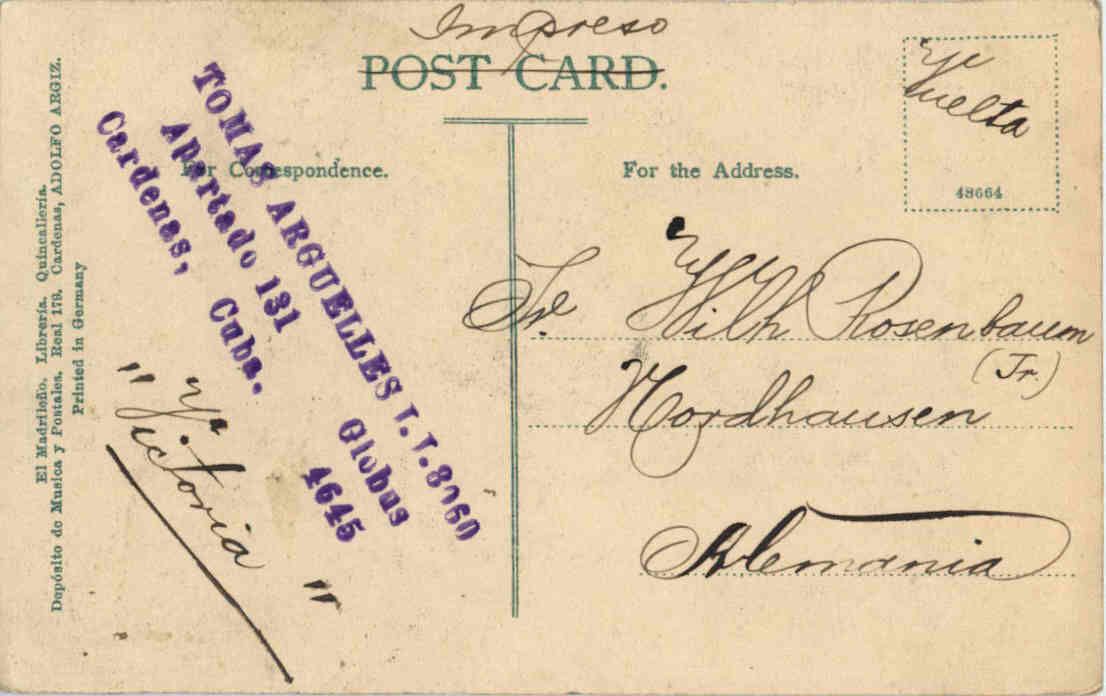 Impreso
POST CARD.
Vuelta
48664
For Correspondence.
For the Address.
El Madrileño. Librería. Quincallería.
Depósito de Musica y Postales. Real 178. Cardenas, ADOLFO ARGIZ.
Printed in Germany
TOMAS ARGUELLES I.I.8060
Apartado 131 Globus
Cardenas, Cuba. 4645
"Via
Victoria"
Wilh Rosenbaum
(Jr.)
Nordhausen
Alemania